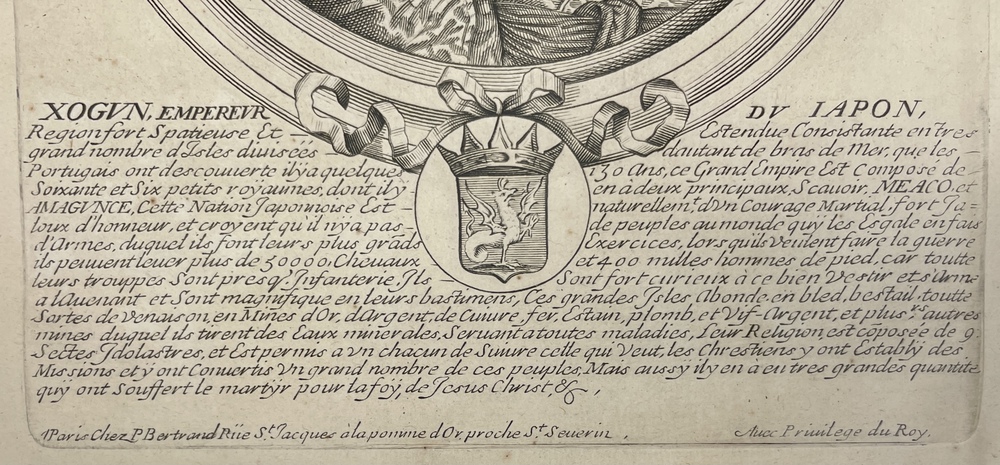 XOGVN, EMPEREVR DV IAPON,
Region fort Spatieuse Et Estendue Consistante en tres
grand nombre d'Isles diuiseés dautant de bras de Mer, que les
Portugais ont descouuerte ilya quelques 150 Ans, ce Grand Empire Est Composé de
Soixante et Six petits röyäumes, dont il y en à deux principaux, Scauoir, MEACO, et
AMAGVNCE, Cette Nation Japonnoise Est naturellem.t d'Vn Courage Martial, fort Ja=
loux d'honneur, et croyent qu'il n'y a pas de peuples au monde quÿ les Esgale en fais
d'Armes, duquel ils font leurs plus grads Exercices, lors quils Veulent faire la guerre
ils peuuent leuer plus de 50000. Cheuaux et 400 milles hommes de pied, car toutte
leurs trouppes Sont presq.' Infanterie, Ils Sont fort curieux à ce bien Vestir et s'Arme
a l'Auenant et Sont magnifique en leurs bastimens, Ces grandes Isles Abonde en bled, bestail, toutte
Sortes de Venaison, en Mines d'Or, d'Argent, de Cuiure, fer, Estain, plomb, et Vif-Argent, et plus.rs autres
mines duquel ils tirent des Eaux minerales, Seruant a toutes maladies, Leur Religion est coposeé de 9
Sectes Idolastres, et Est permis a Vn chacun de Suiure celle qui Veut, les Chrestiens y ont Establÿ des
Missions et ÿ ont Conuertis Vn grand nombre de ces peuples, Mais aussy il y en a eu tres grandes quantité
quÿ ont Souffert le martÿr pour la foÿ, de Jesus Christ, &c,
A Paris Chez P Bertrand Rüe S.t Jacques à la pomme d'Or, proche S.t Seuerin, Auec Priuilege du Roy.